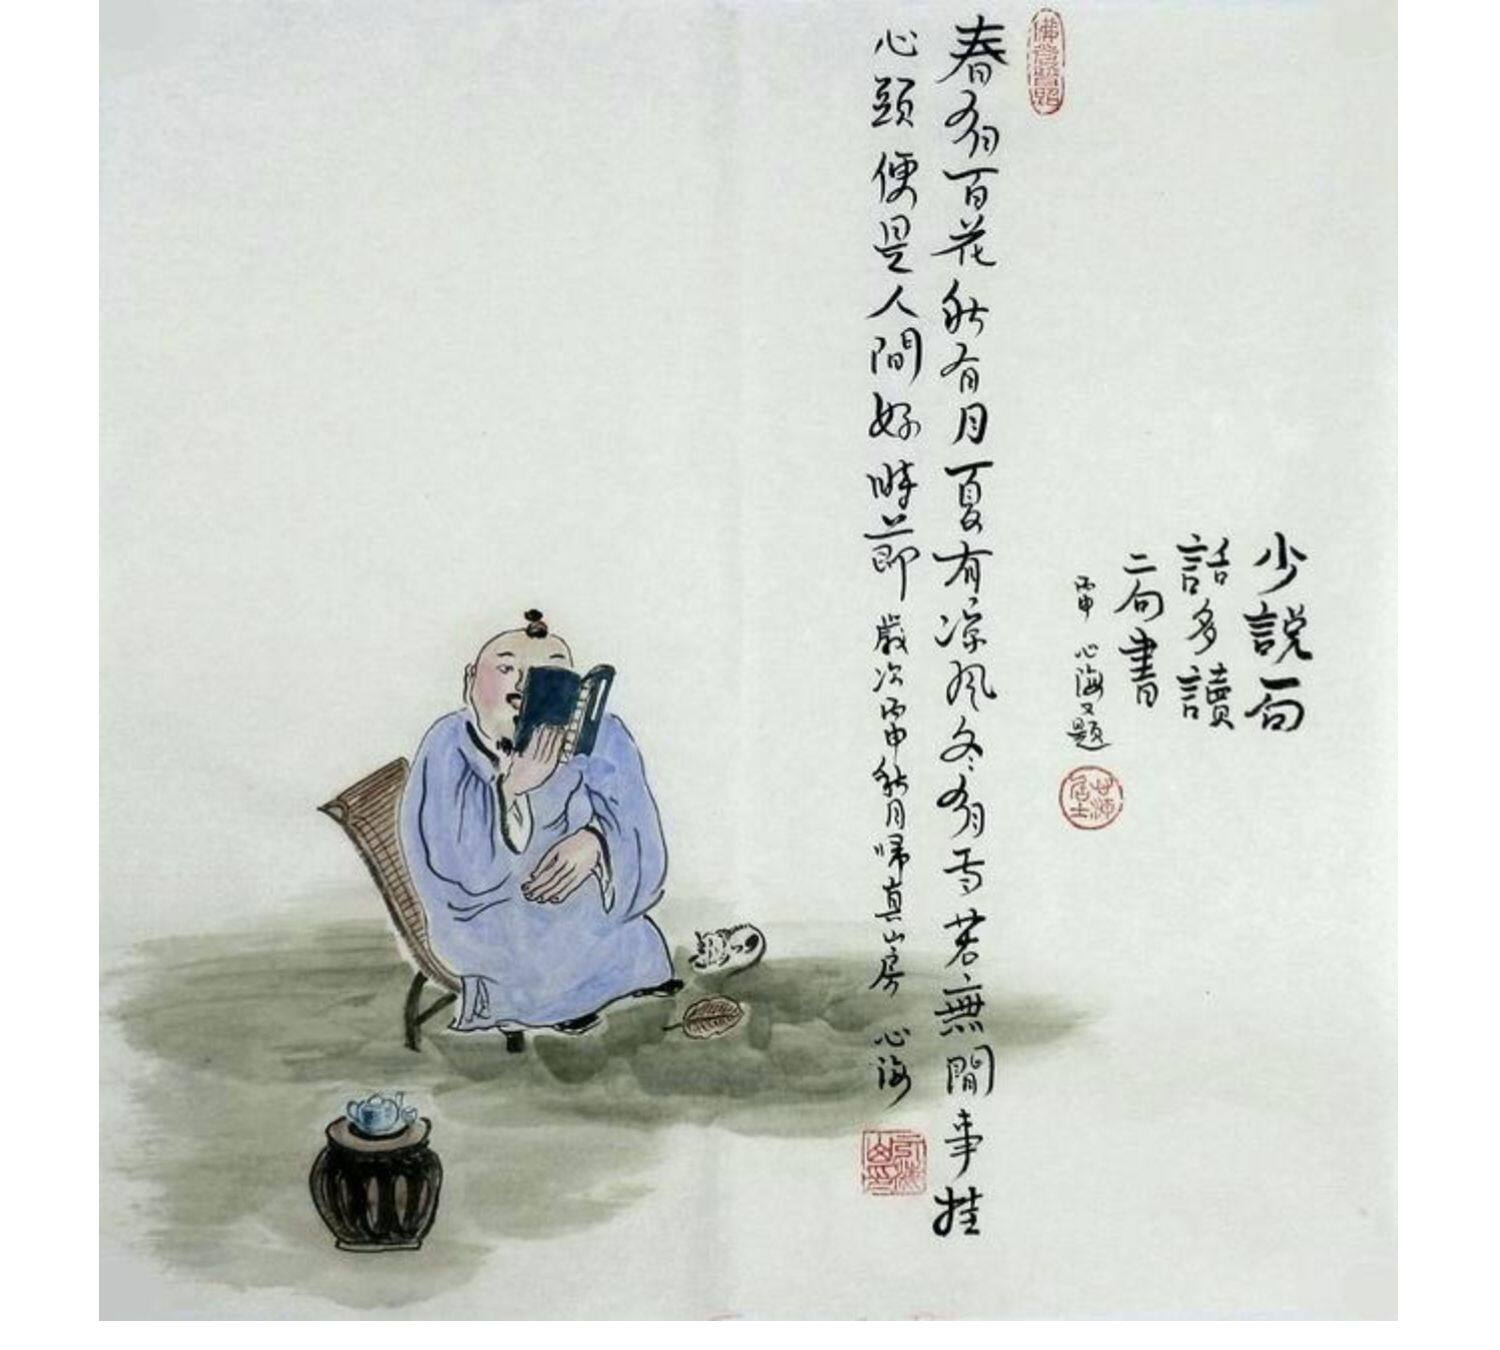 少説一句
話多讀
二句書
丙申 心海又題
甘源居士
佛光普照
春有百花秋有月夏有凉风冬有雪若無閒事挂
心頭便是人間好時節 歲次丙申秋月歸真山房 心海